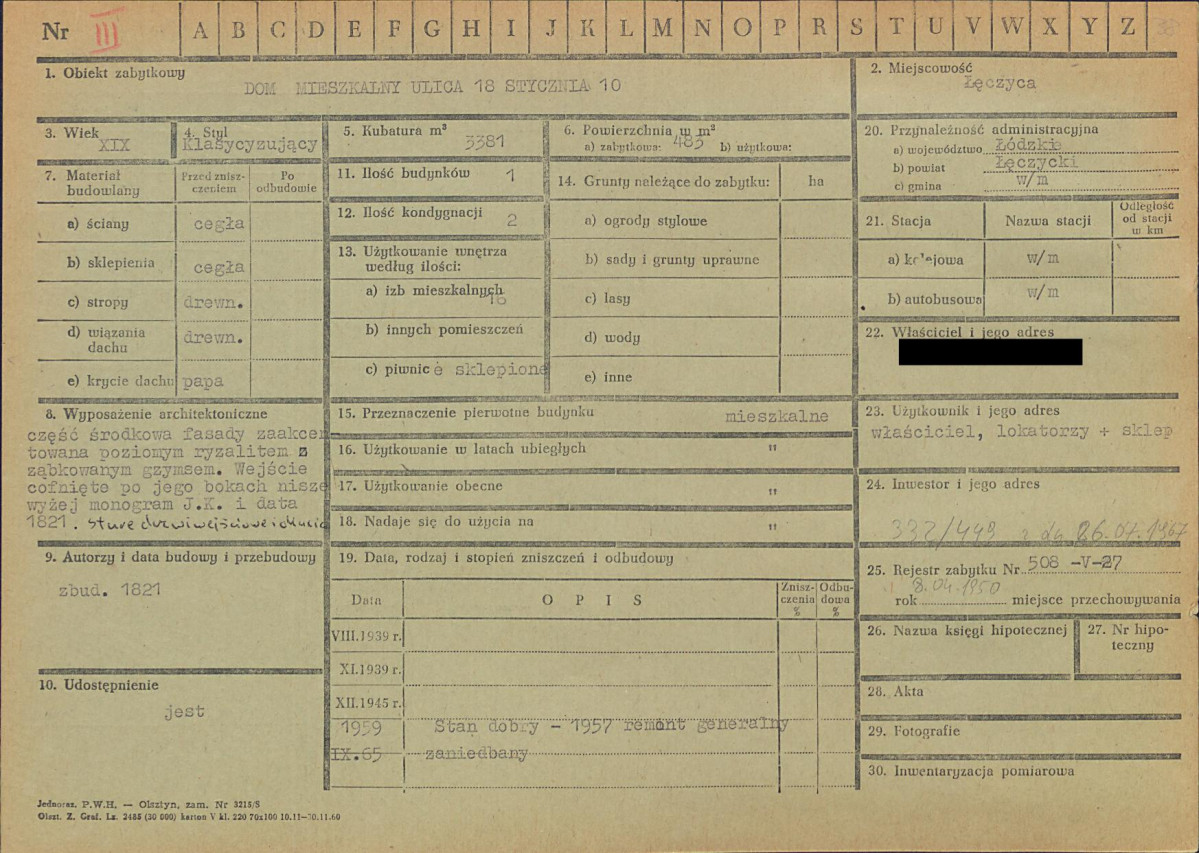 Nr III A B C D E F G H I J K L M N O P R S T U V W X Y Z
1. Obiekt zabytkowy
DOM MIESZKALNY ULICA 18 STYCZNIA 10
2. Miejscowość
Łęczyca
3. Wiek
XIX
4. Styl
Klasycyzujący
5. Kubatura m³
3381
6. Powierzchnia w m²
a) zabytkowa: 483 b) użytkowa:
7. Materiał budowlany
Przed zniszczeniem
Po odbudowie
a) ściany cegła
b) sklepienia cegła
c) stropy drewn.
d) wiązania dachu drewn.
e) krycie dachu papa
8. Wyposażenie architektoniczne
część środkowa fasady zaakcen
towana poziomym ryzalitem z
ząbkowanym gzymsem. Wejście
cofnięte po jego bokach nisze
wyżej monogram J.K. i data
1821. stare drzwi wejściowe i okucia
9. Autorzy i data budowy i przebudowy
zbud. 1821
10. Udostępnienie
jest
11. Ilość budynków 1
12. Ilość kondygnacji 2
13. Użytkowanie wnętrza
według ilości:
a) izb mieszkalnych 16
b) innych pomieszczeń
c) piwnic è sklepione
14. Grunty należące do zabytku: ha
a) ogrody stylowe
b) sady i grunty uprawne
c) lasy
d) wody
e) inne
15. Przeznaczenie pierwotne budynku mieszkalne
16. Użytkowanie w latach ubiegłych "
17. Użytkowanie obecne "
18. Nadaje się do użycia na "
19. Data, rodzaj i stopień zniszczeń i odbudowy
Data O P I S Zniszczenia % Odbudowa %
VIII.1939 r.
XI.1939 r.
XII.1945 r.
1959 Stan dobry - 1957 remont generalny
IX.65 zaniedbany
20. Przynależność administracyjna
a) województwo Łódzkie
b) powiat Łęczycki
c) gmina w/m
21. Stacja Nazwa stacji Odległość od stacji w km
a) kolejowa w/m
b) autobusowa w/m
22. Właściciel i jego adres
23. Użytkownik i jego adres
właściciel, lokatorzy + sklep
24. Inwestor i jego adres
332/449 z dn 26.07.1967
25. Rejestr zabytku Nr 508 -V-27
8.04.1950
rok miejsce przechowywania
26. Nazwa księgi hipotecznej
27. Nr hipoteczny
28. Akta
29. Fotografie
30. Inwentaryzacja pomiarowa
Jednoraz. P.W.H. — Olsztyn, zam. Nr 3215/S
Olszt. Z. Graf. Lz. 2485 (30 000) karton V kl. 220 70x100 10.11—30.11.60